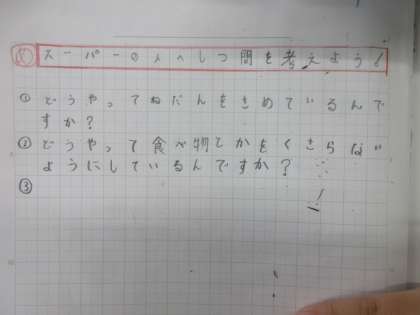 スーパーの人へしつ問を考えよう!
① どうやってねだんをきめているんで
すか?
② どうやって食べ物とかをくさらない
ようにしているんですか?
③